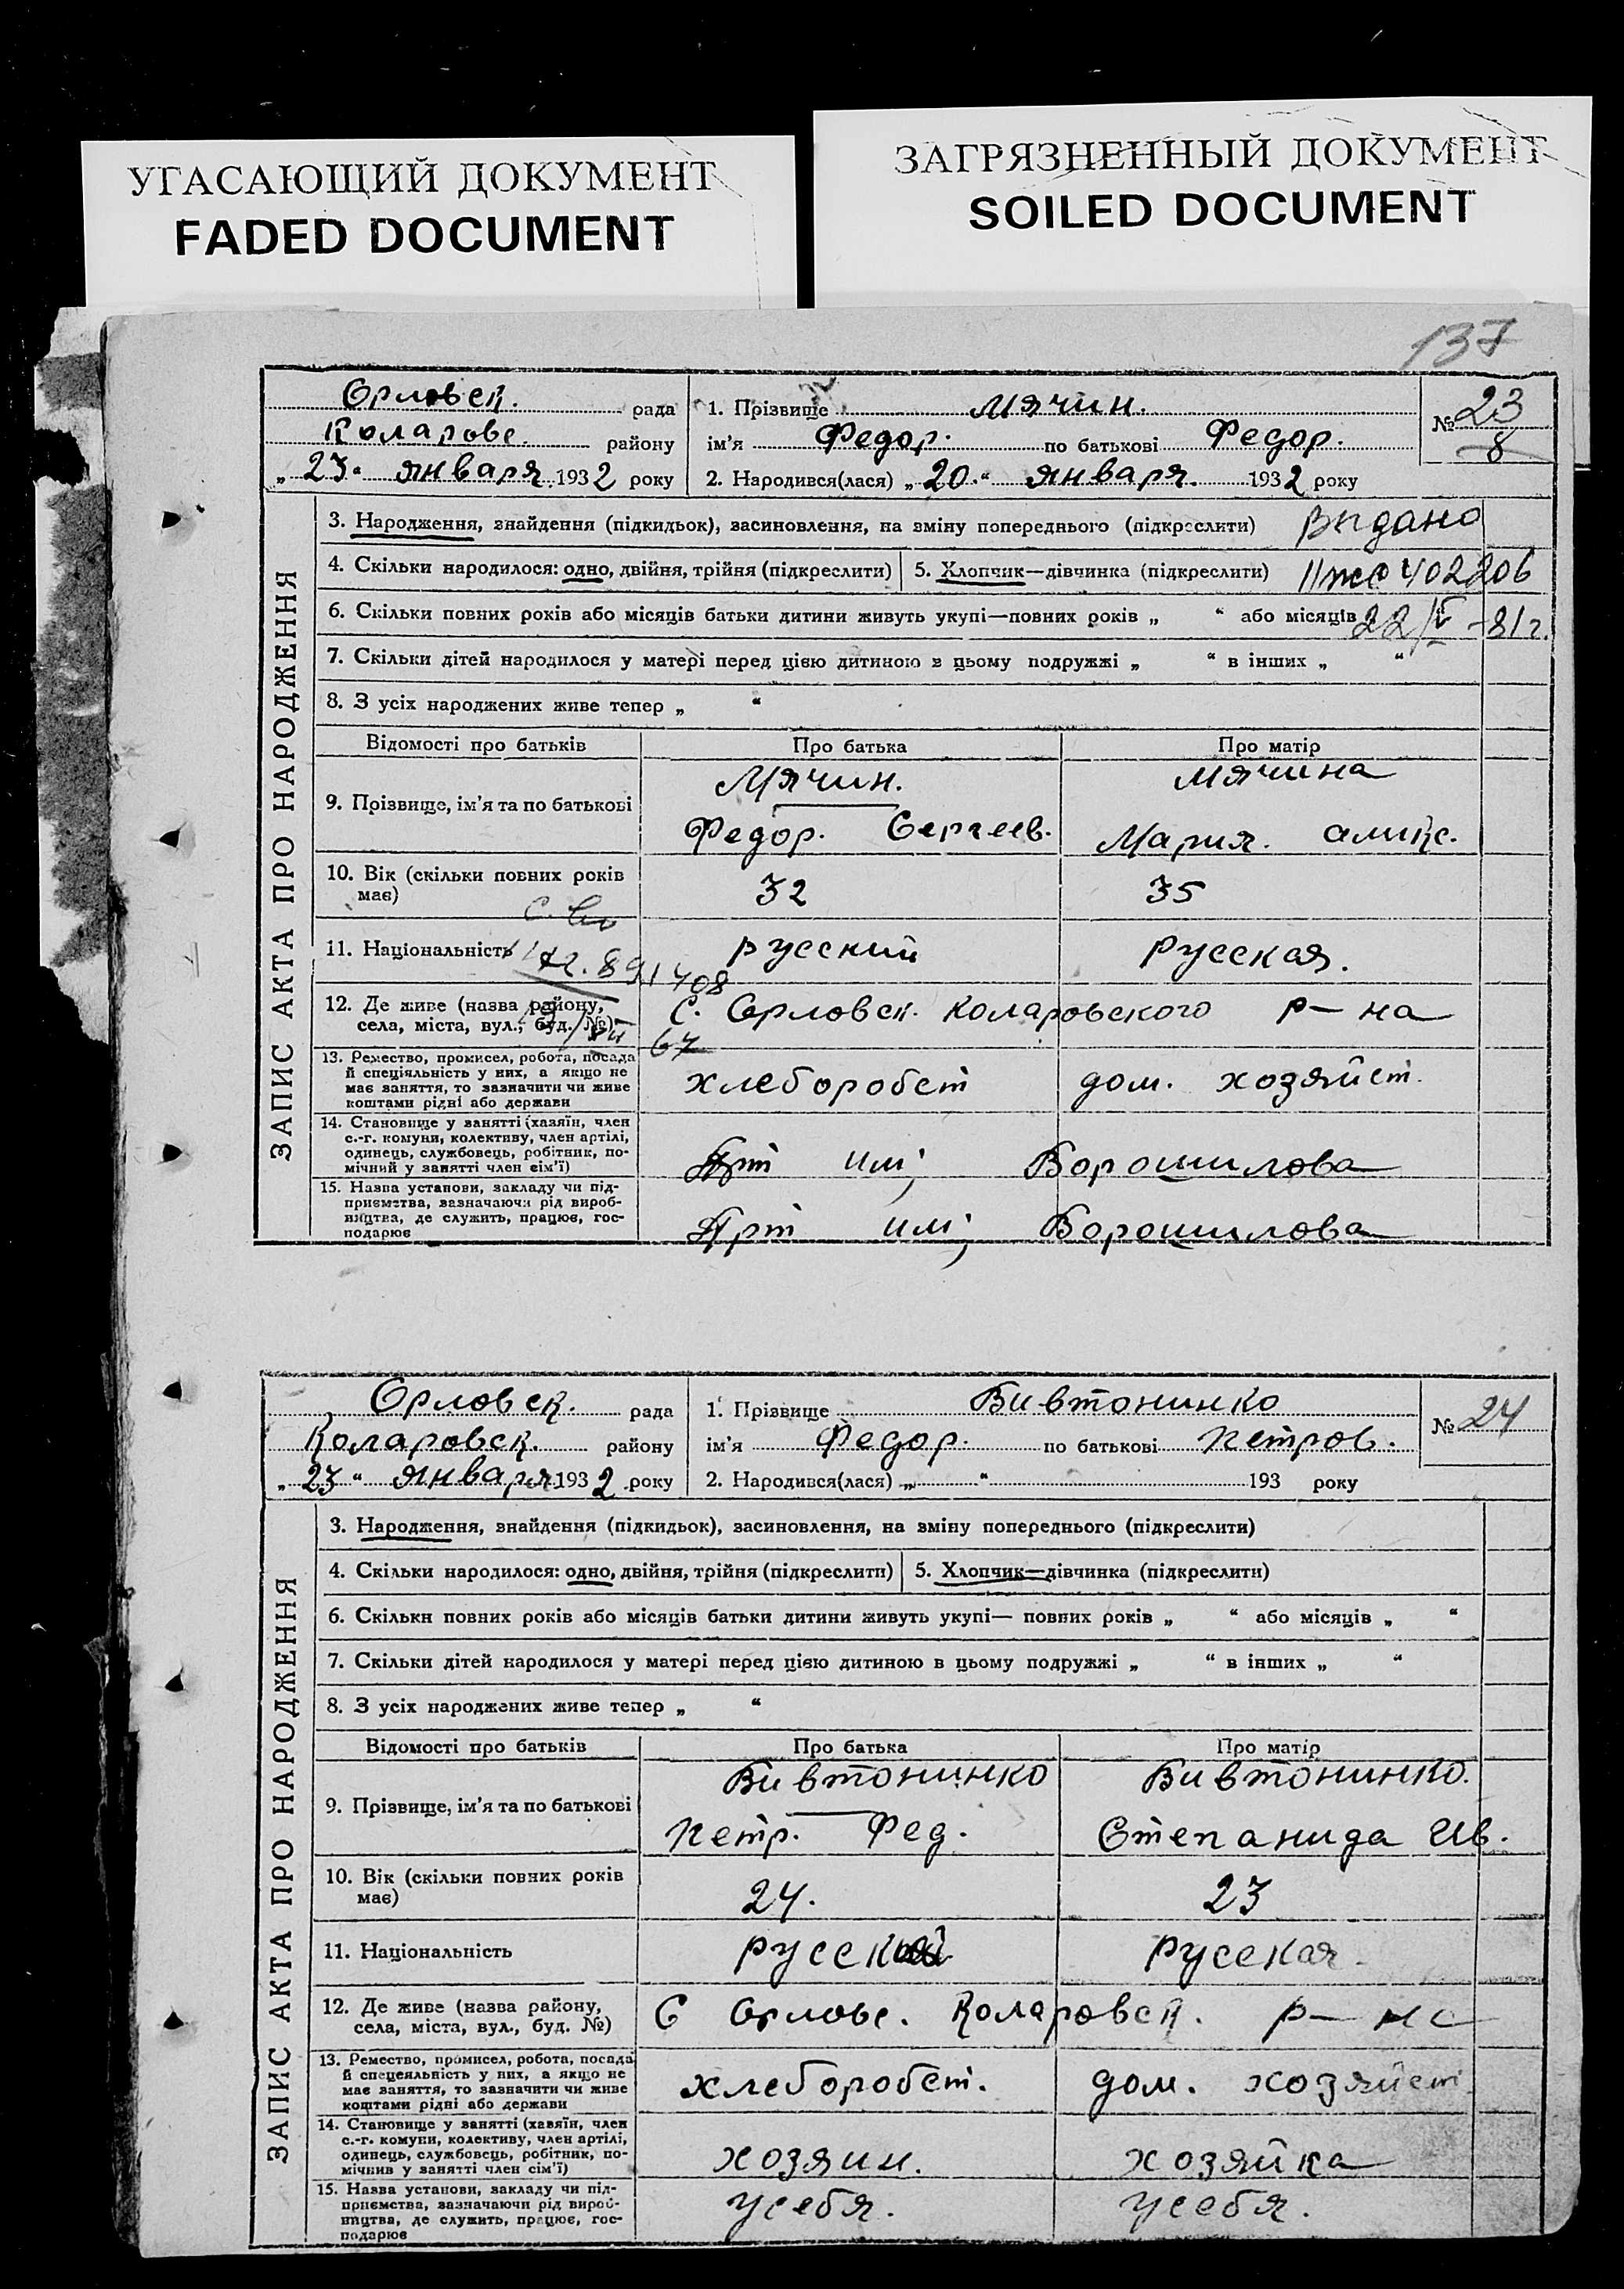 УГАСАЮЩИЙ ДОКУМЕНТ
FADED DOCUMENT
ЗАГРЯЗНЕННЫЙ ДОКУМЕНТ
SOILED DOCUMENT
137
Орловск. рада
Коларовс. району
„23“ января 1932 року
1. Прізвище Мячин.
ім'я Федор. по батькові Федор.
2. Народився(лася) „20“ января. 1932 року
№ 23
8
ЗАПИС АКТА ПРО НАРОДЖЕННЯ
3. Народження, знайдення (підкидьок), засиновлення, на зміну попереднього (підкреслити) Видано
4. Скільки народилося: одно, двійня, трійня (підкреслити) 5. Хлопчик—дівчинка (підкреслити) 402206
6. Скільки повних років або місяців батьки дитини живуть укупі—повних років „ “ або місяців 22/V-81г.
7. Скільки дітей народилося у матері перед цією дитиною в цьому подружжі „ “ в інших „ “
8. З усіх народжених живе тепер „ “
Відомості про батьків Про батька Про матір
9. Прізвище, ім'я та по батькові
Мячин.
Федор. Сергеев.
Мячина
Мария. Аликс.
10. Вік (скільки повних років має) 32 35
11. Національність русский русская.
891408
12. Де живе (назва району, села, міста, вул., буд. №) С. Орловск. Коларовского р—на
67
13. Ремество, промисел, робота, посада
й спеціяльність у них, а якщо не
має заняття, то зазначити чи живе
коштами рідні або держави
хлеборобст дом. хозяйст.
14. Становище у занятті (хазяїн, член
с.-г. комуни, колективу, член артілі,
одинець, службовець, робітник, по-
мічний у занятті член сім'ї)
Арт им; Ворошилова
15. Назва установи, закладу чи під-
приємства, зазначаючи рід вироб-
ництва, де служить, працює, гос-
подарює
Арт им; Ворошилова
Орловск. рада
Коларовск. району
„23“ января 1932 року
1. Прізвище Бивтонинко
ім'я Федор. по батькові Петров.
2. Народився(лася) „ “ 193 року
№ 24
ЗАПИС АКТА ПРО НАРОДЖЕННЯ
3. Народження, знайдення (підкидьок), засиновлення, на зміну попереднього (підкреслити)
4. Скільки народилося: одно, двійня, трійня (підкреслити) 5. Хлопчик—дівчинка (підкреслити)
6. Скільки повних років або місяців батьки дитини живуть укупі— повних років „ “ або місяців „ “
7. Скільки дітей народилося у матері перед цією дитиною в цьому подружжі „ “ в інших „ “
8. З усіх народжених живе тепер „ “
Відомості про батьків Про батька Про матір
9. Прізвище, ім'я та по батькові
Бивтонинко
Петр. Фед.
Бивтонинко.
Степанида Ив.
10. Вік (скільки повних років має) 24. 23
11. Національність русский русская.
12. Де живе (назва району, села, міста, вул., буд. №) С Орловс. Коларовск. р—на
13. Ремество, промисел, робота, посада
й спецеяльність у них, а якщо не
має заняття, то зазначити чи живе
коштами рідні або держави
хлеборобст. дом. хозяйст
14. Становище у занятті (хазяїн, член
с.-г. комуни, колективу, член артілі,
одинець, службовець, робітник, по-
мічнив у занятті член сім'ї)
хозяин. хозяйка
15. Назва установи, закладу чи під-
приємства, зазначаючи рід вироб-
ництва, де служить, працює, гос-
подарює
усебя. усебя.